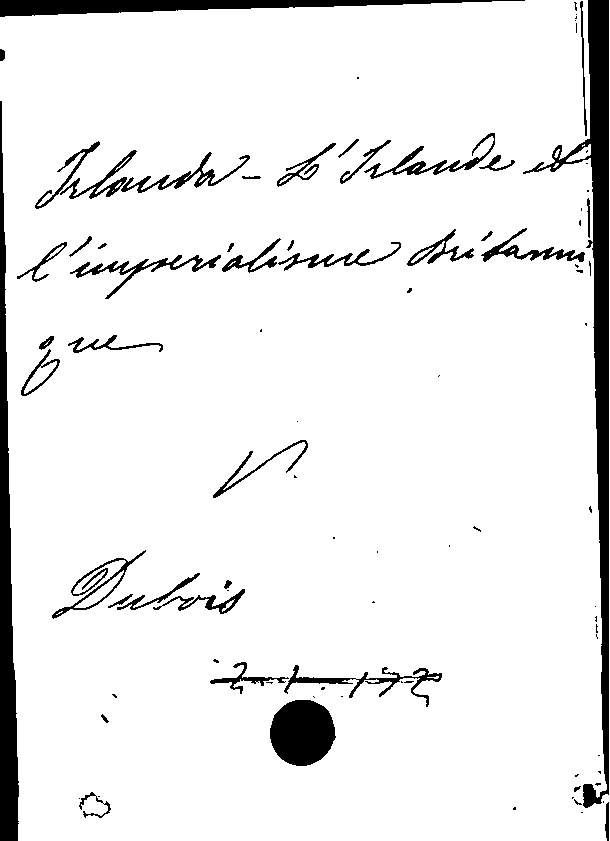 Irlanda - L'Irlande et
l'imperialisme Britanni
que
V.
Dubois
2. 1. 172